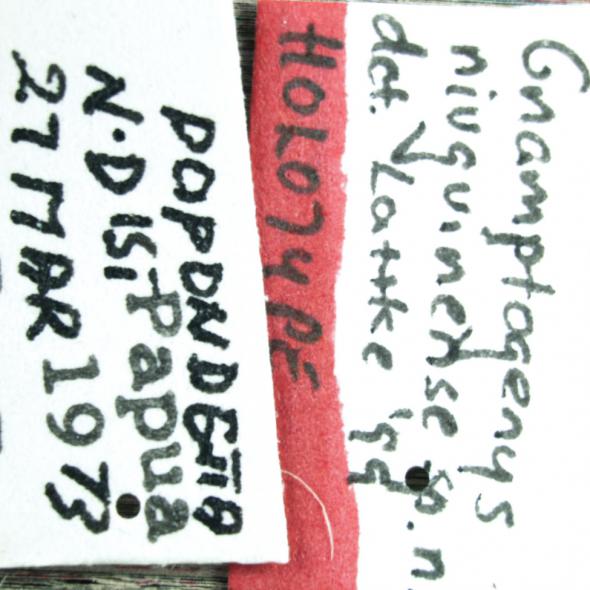 POPONDETTA
N.DIST, Papua
27 MAR 1973
HOLOTYPE
Gnamptogenys
niuguinense sp.n.
det. Lattke '99